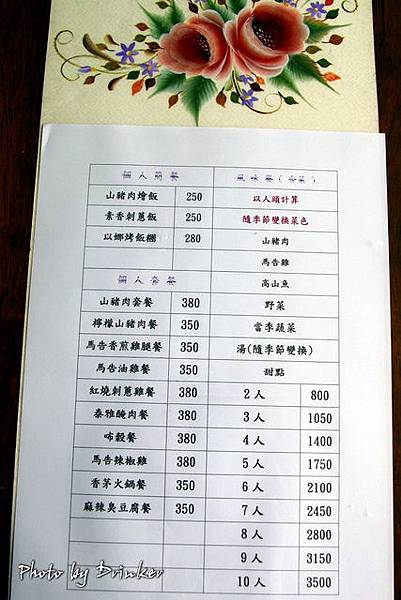 個人簡餐
山豬肉燴飯 250
素香刺蔥飯 250
以娜烤飯糰 280
個人套餐
山豬肉套餐 380
檸檬山豬肉餐 350
馬告香煎雞腿餐 350
馬告油雞餐 350
紅燒刺蔥雞餐 380
泰雅醃肉餐 380
咘穀餐 380
馬告辣椒雞 380
香茅火鍋餐 350
麻辣臭豆腐餐 350
風味餐(合菜)
以人頭計算
隨季節變換菜色
山豬肉
馬告雞
高山魚
野菜
當季蔬菜
湯(隨季節變換)
甜點
2人 800
3人 1050
4人 1400
5人 1750
6人 2100
7人 2450
8人 2800
9人 3150
10人 3500
Photo by Drinker